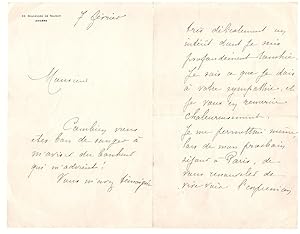 7 février
Monsieur
Combien vous
êtes bon de songer à
m'aviser du bonheur
qui m'advient!
Vous m'avez témoigné
très délicatement un
intérêt dont je suis
profondément touchée
Je sais ce que je dois
à votre sympathie, et
je vous en remercie
chaleureusement.
Je me permettrai même,
lors de mon prochain
séjour à Paris, de
vous renouveler de
vive voix l'expression